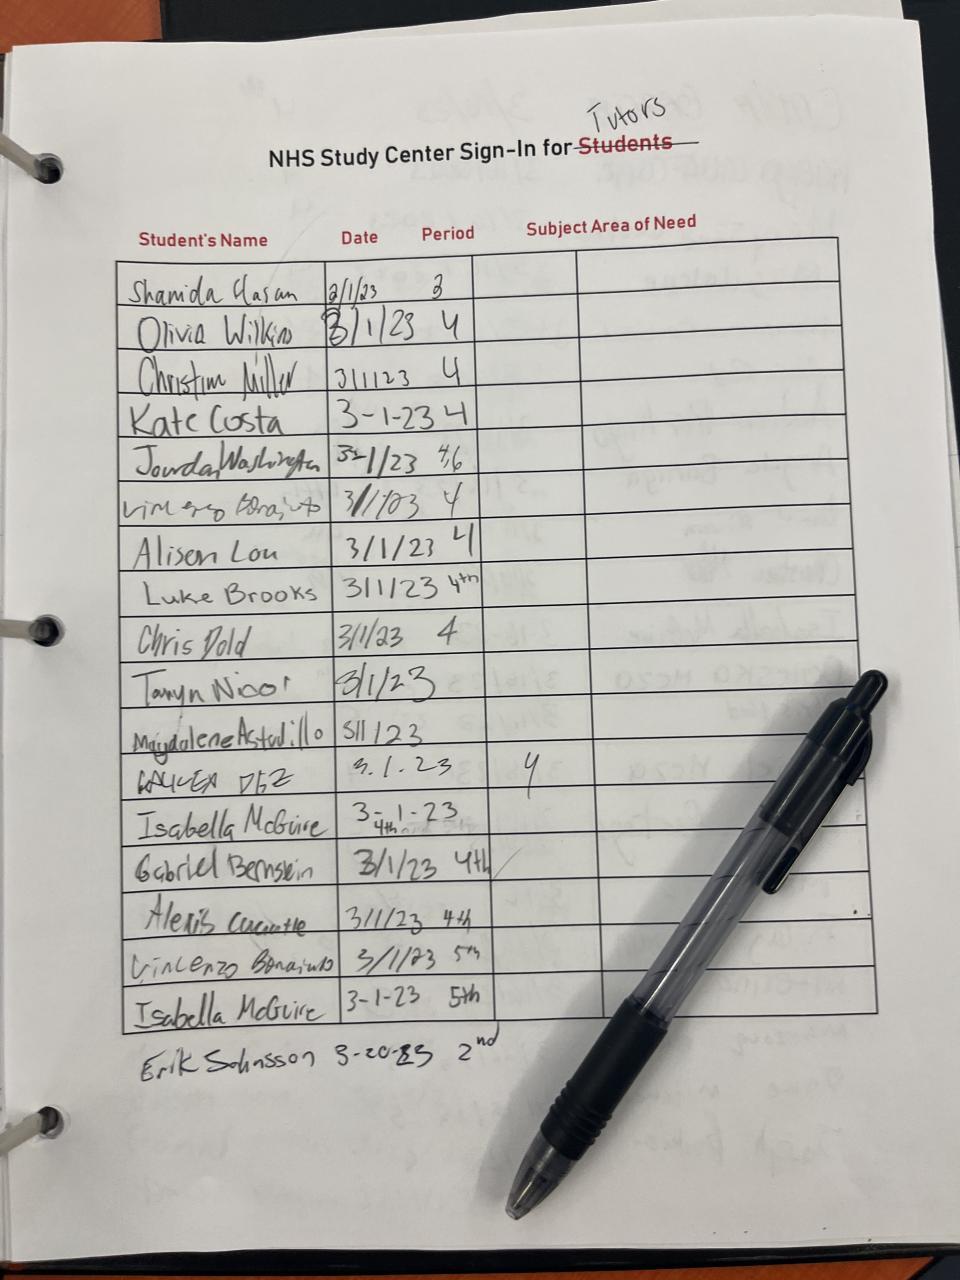 Tutors
NHS Study Center Sign-In for Students
Student's Name Date Period Subject Area of Need
Shamida Hasan 3/1/23 3
Olivia Wilkins 3/1/23 4
Miller 3/1/23 4
Kate Costa 3-1-23 4
Jourdan Washington 3-1/23 4,6
3/1/23 4
Alison Lou 3/1/23 4
Luke Brooks 3/1/23 4th
Chris Dold 3/1/23 4
Taryn 3/1/23
Magdalene Astudillo 3/1/23
3.1.23 4
Isabella McGuire 3-1-23
4th
Gabriel Bernstein 3/1/23 4th
Alexis 3/1/23 4th
Vincenzo 3/1/23 5th
Isabella McGuire 3-1-23 5th
Erik 3-20-23 2nd